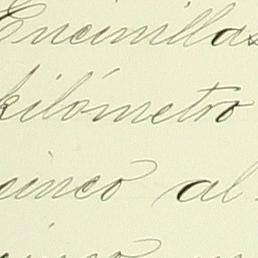 Encinillas
kilómetro
cinco al
cinco